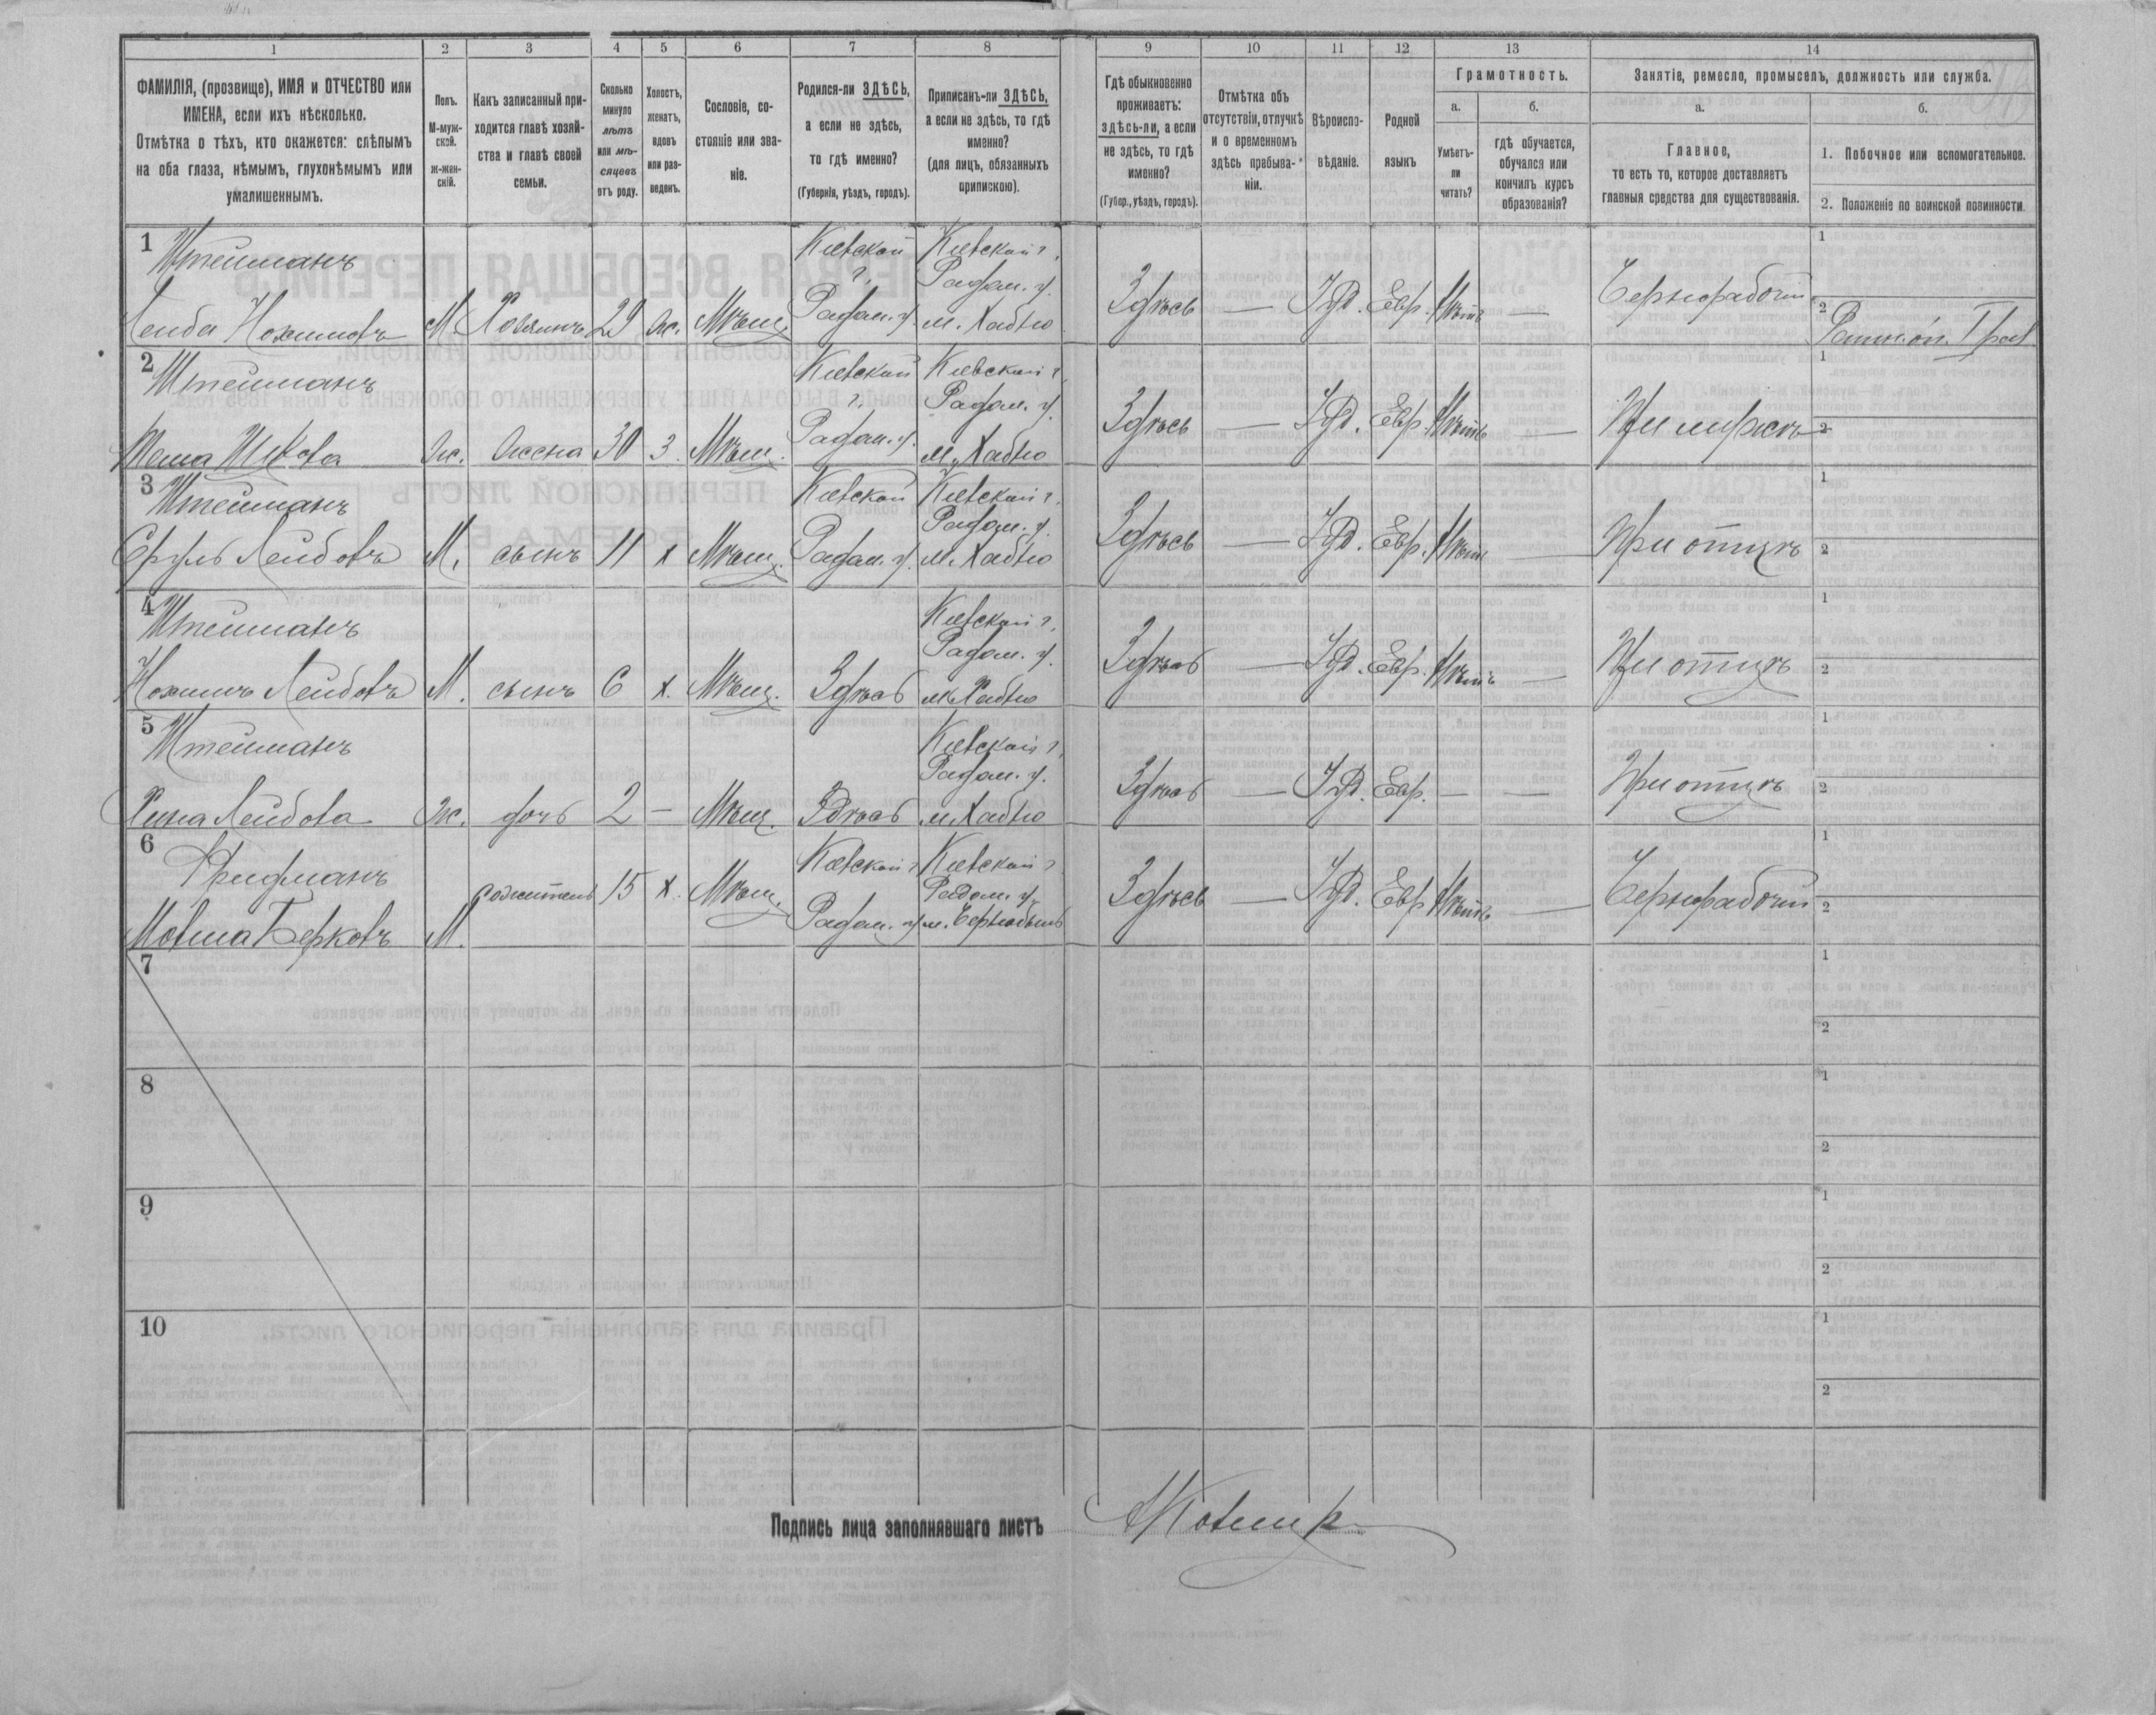 1 2 3 4 5 6 7 8 9 10 11 12 13 14
ФАМИЛІЯ, (прозвище), ИМЯ и ОТЧЕСТВО или
ИМЕНА, если ихъ нѣсколько.
Отмѣтка о тѣхъ, кто окажется: слѣпымъ
на оба глаза, нѣмымъ, глухонѣмымъ или
умалишеннымъ.
Полъ.
М-муж-
ской.
ж-жен-
скій.
Какъ записанный при-
ходится главѣ хозяй-
ства и главѣ своей
семьи.
Сколько
минуло
лѣтъ
или мѣ-
сяцевъ
отъ роду.
Холостъ,
женатъ,
вдовъ
или раз-
веденъ.
Сословіе, со-
стояніе или зва-
ніе.
Родился-ли ЗДѢСЬ,
а если не здѣсь,
то гдѣ именно?
(Губернія, уѣздъ, городъ).
Приписанъ-ли ЗДѢСЬ,
а если не здѣсь, то гдѣ
именно?
(для лицъ, обязанныхъ
припискою).
Гдѣ обыкновенно
проживаетъ:
здѣсь-ли, а если
не здѣсь, то гдѣ
именно?
(Губер., уѣздъ, городъ).
Отмѣтка объ
отсутствіи, отлучкѣ
и о временномъ
здѣсь пребыва-
ніи.
Вѣроиспо-
вѣданіе.
Родной
языкъ
Грамотность.
а.
Умѣетъ-
ли
читать?
б.
гдѣ обучается,
обучался или
кончилъ курсъ
образованія?
Занятіе, ремесло, промыселъ, должность или служба.
а.
Главное,
то есть то, которое доставляетъ
главныя средства для существованія.
б.
1. Побочное или вспомогательное.
2. Положеніе по воинской повинности.
1
Штейманъ Кіевской Кіевской г.
г. Радом. у.
Лейба Нохимовъ М. Хозяинъ 29 ж. Мѣщ. Радом. у. м. Хабно Здѣсь — ІУД. Евр. Нѣтъ — Чернорабочій
1
2 Ратн. оп. I раз
2
Штейманъ Кіевской Кіевской г.
г. Радом. у.
Ж. Жена 30 з. Мѣщ. Радом. у. м. Хабно Здѣсь — ІУД. Евр. Нѣтъ — При мужѣ
1
2
3
Штейманъ Кіевской Кіевской г.
Радом. у.
Сруль Лейбовъ М. сынъ 11 х Мѣщ. Радом. у. м. Хабно Здѣсь — ІУД. Евр. Нѣтъ — При отцѣ
1
2
4
Штейманъ Кіевской г.
Радом. у.
Нохимъ Лейбовъ М. сынъ 6 х. Мѣщ. Здѣсь м. Хабно Здѣсь — ІУД. Евр. Нѣтъ — При отцѣ
1
2
5
Штейманъ Кіевской г.
Радом. у.
Лейбова Ж. дочь 2 — Мѣщ. Здѣсь м. Хабно Здѣсь — ІУД. Евр. — — При отцѣ
1
2
6
Фридманъ Кіевской г. Кіевской г.
15 х. Мѣщ. Радом. у.
Мовша Берковъ М. Радом. у. м. Чернобыль Здѣсь — ІУД. Евр. Нѣтъ — Чернорабочій
1
2
7
1
2
8
1
2
9
1
2
10
1
2
Подпись лица заполнявшаго листъ